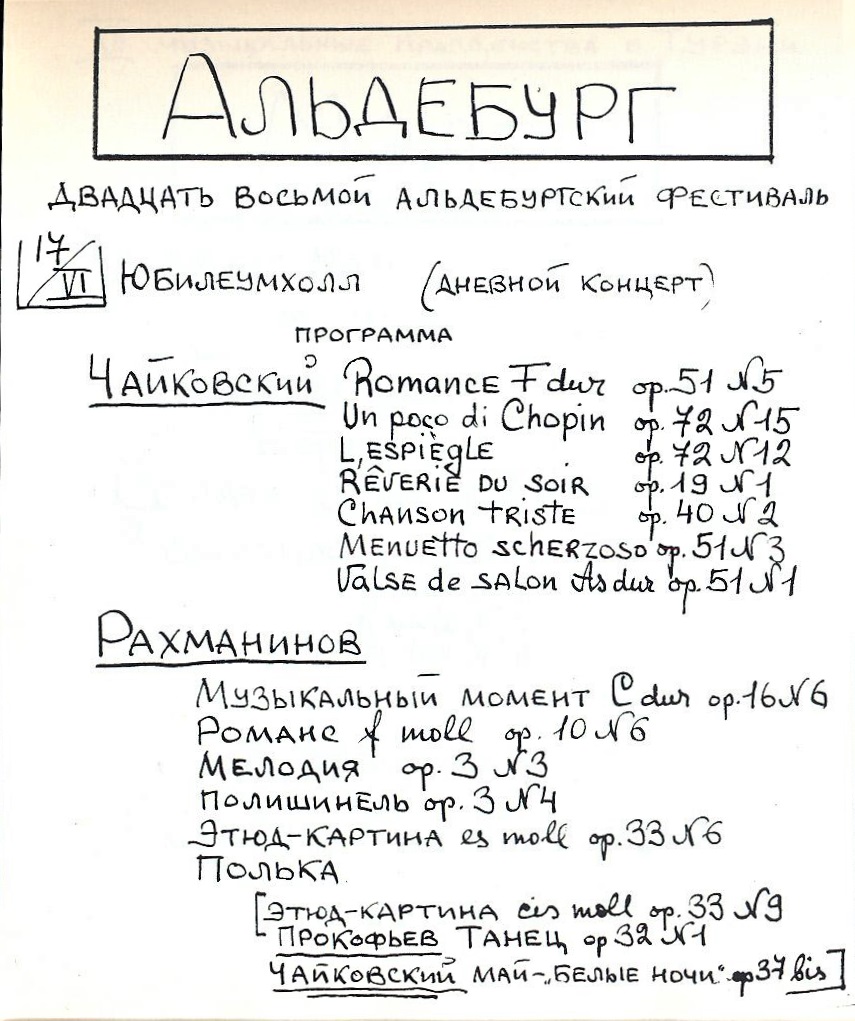 АЛЬДЕБУРГ
ДВАДЦАТЬ ВОСЬМОЙ АЛЬДЕБУРГСКИЙ ФЕСТИВАЛЬ
17/VI ЮБИЛЕУМХОЛЛ (ДНЕВНОЙ КОНЦЕРТ)
ПРОГРАММА
ЧАЙКОВСКИЙ Romance F dur op. 51 N5
Un poco di Chopin op. 72 N15
L,ESPIÈGLE op. 72 N12
RÊVERIE DU SOIR op. 19 N1
CHANSON TRISTE op. 40 N2
MENUETTO SCHERZOSO op. 51 N3
VALSE de SALON As dur op. 51 N1
РАХМАНИНОВ
МУЗЫКАЛЬНЫЙ МОМЕНТ C dur op. 16 N6
РОМАНС f moll op. 10 N6
МЕЛОДИЯ op. 3 N3
ПОЛИШИНЕЛЬ op. 3 N4
ЭТЮД-КАРТИНА es moll op. 33 N6
ПОЛЬКА
[ЭТЮД-КАРТИНА cis moll op. 33 N9
ПРОКОФЬЕВ ТАНЕЦ op 32 N1
ЧАЙКОВСКИЙ МАЙ-„БЕЛЫЕ НОЧИ“ op 37 bis]